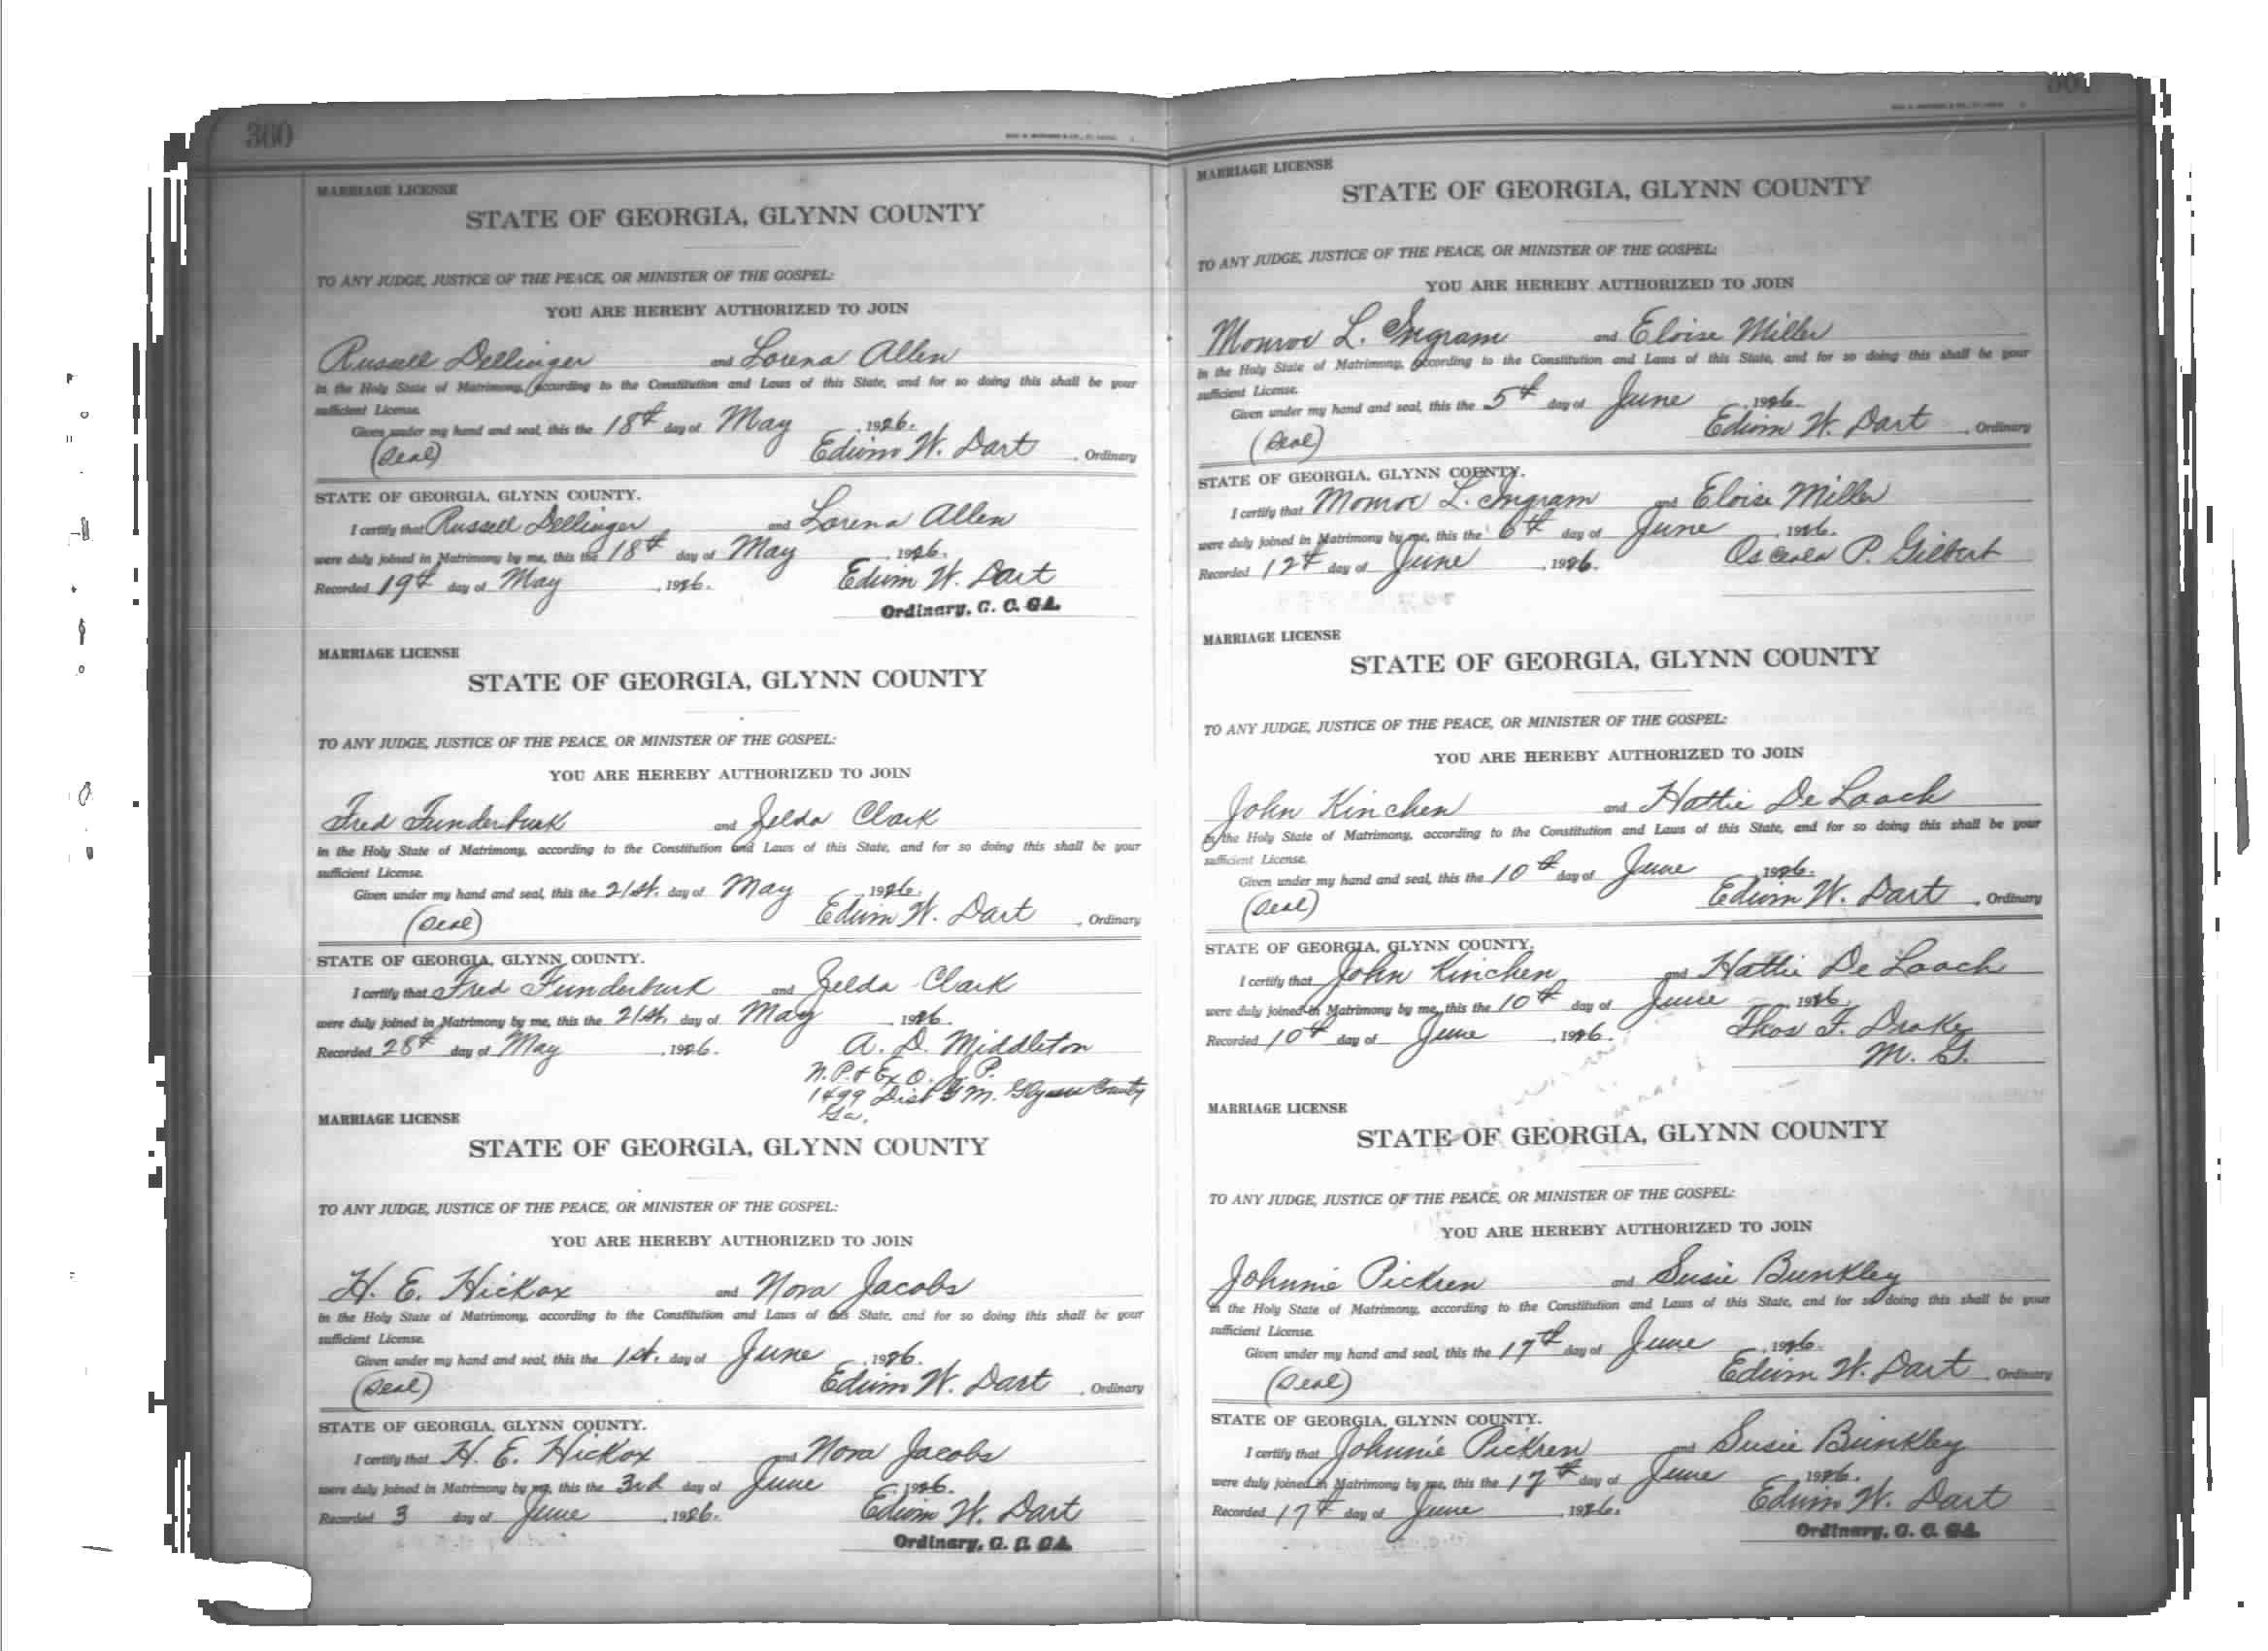 360
MARRIAGE LICENSE
STATE OF GEORGIA, GLYNN COUNTY
TO ANY JUDGE, JUSTICE OF THE PEACE, OR MINISTER OF THE GOSPEL:
YOU ARE HEREBY AUTHORIZED TO JOIN
Russell Dellinger and Lorena Allen
in the Holy State of Matrimony, according to the Constitution and Laws of this State, and for so doing this shall be your
sufficient License.
Given under my hand and seal, this the 18th day of May, 1926.
(Seal) Edwin W. Dart, Ordinary
STATE OF GEORGIA, GLYNN COUNTY.
I certify that Russell Dellinger and Lorena Allen
were duly joined in Matrimony by me, this the 18th day of May, 1926.
Recorded 19th day of May, 1926. Edwin W. Dart
Ordinary, G. C. GA.
MARRIAGE LICENSE
STATE OF GEORGIA, GLYNN COUNTY
TO ANY JUDGE, JUSTICE OF THE PEACE, OR MINISTER OF THE GOSPEL:
YOU ARE HEREBY AUTHORIZED TO JOIN
Fred Funderburk and Zelda Clark
in the Holy State of Matrimony, according to the Constitution and Laws of this State, and for so doing this shall be your
sufficient License.
Given under my hand and seal, this the 21st. day of May, 1926.
(Seal) Edwin W. Dart, Ordinary
STATE OF GEORGIA, GLYNN COUNTY.
I certify that Fred Funderburk and Zelda Clark
were duly joined in Matrimony by me, this the 21st. day of May, 1926.
Recorded 28th day of May, 1926. A. D. Middleton
N.P. & Ex O. J. P.
1499 Dist G M. Glynn County
Ga.
MARRIAGE LICENSE
STATE OF GEORGIA, GLYNN COUNTY
TO ANY JUDGE, JUSTICE OF THE PEACE, OR MINISTER OF THE GOSPEL:
YOU ARE HEREBY AUTHORIZED TO JOIN
H. E. Hickox and Nora Jacobs
in the Holy State of Matrimony, according to the Constitution and Laws of this State, and for so doing this shall be your
sufficient License.
Given under my hand and seal, this the 1st. day of June, 1926.
(Seal) Edwin W. Dart, Ordinary
STATE OF GEORGIA, GLYNN COUNTY.
I certify that H. E. Hickox and Nora Jacobs
were duly joined in Matrimony by me, this the 3rd day of June, 1926.
Recorded 3 day of June, 1926. Edwin W. Dart
Ordinary, G. C. GA.
MARRIAGE LICENSE
STATE OF GEORGIA, GLYNN COUNTY
TO ANY JUDGE, JUSTICE OF THE PEACE, OR MINISTER OF THE GOSPEL:
YOU ARE HEREBY AUTHORIZED TO JOIN
Monroe L. Ingram and Eloise Miller
in the Holy State of Matrimony, according to the Constitution and Laws of this State, and for so doing this shall be your
sufficient License.
Given under my hand and seal, this the 5th day of June, 1926.
(Seal) Edwin W. Dart, Ordinary
STATE OF GEORGIA, GLYNN COUNTY.
I certify that Monroe L. Ingram and Eloise Miller
were duly joined in Matrimony by me, this the 6th day of June, 1926.
Recorded 12th day of June, 1926. Osceola P. Gilbert
MARRIAGE LICENSE
STATE OF GEORGIA, GLYNN COUNTY
TO ANY JUDGE, JUSTICE OF THE PEACE, OR MINISTER OF THE GOSPEL:
YOU ARE HEREBY AUTHORIZED TO JOIN
John Kinchen and Hattie De Loach
in the Holy State of Matrimony, according to the Constitution and Laws of this State, and for so doing this shall be your
sufficient License.
Given under my hand and seal, this the 10th day of June, 1926.
(Seal) Edwin W. Dart, Ordinary
STATE OF GEORGIA, GLYNN COUNTY.
I certify that John Kinchen and Hattie De Loach
were duly joined in Matrimony by me, this the 10th day of June, 1926.
Recorded 10th day of June, 1926. Thos F. Drake
M. G.
MARRIAGE LICENSE
STATE OF GEORGIA, GLYNN COUNTY
TO ANY JUDGE, JUSTICE OF THE PEACE, OR MINISTER OF THE GOSPEL:
YOU ARE HEREBY AUTHORIZED TO JOIN
Johnnie Pickren and Susie Bunkley
in the Holy State of Matrimony, according to the Constitution and Laws of this State, and for so doing this shall be your
sufficient License.
Given under my hand and seal, this the 17th day of June, 1926.
(Seal) Edwin W. Dart, Ordinary
STATE OF GEORGIA, GLYNN COUNTY.
I certify that Johnnie Pickren and Susie Bunkley
were duly joined in Matrimony by me, this the 17th day of June, 1926.
Recorded 17th day of June, 1926. Edwin W. Dart
Ordinary, G. C. GA.